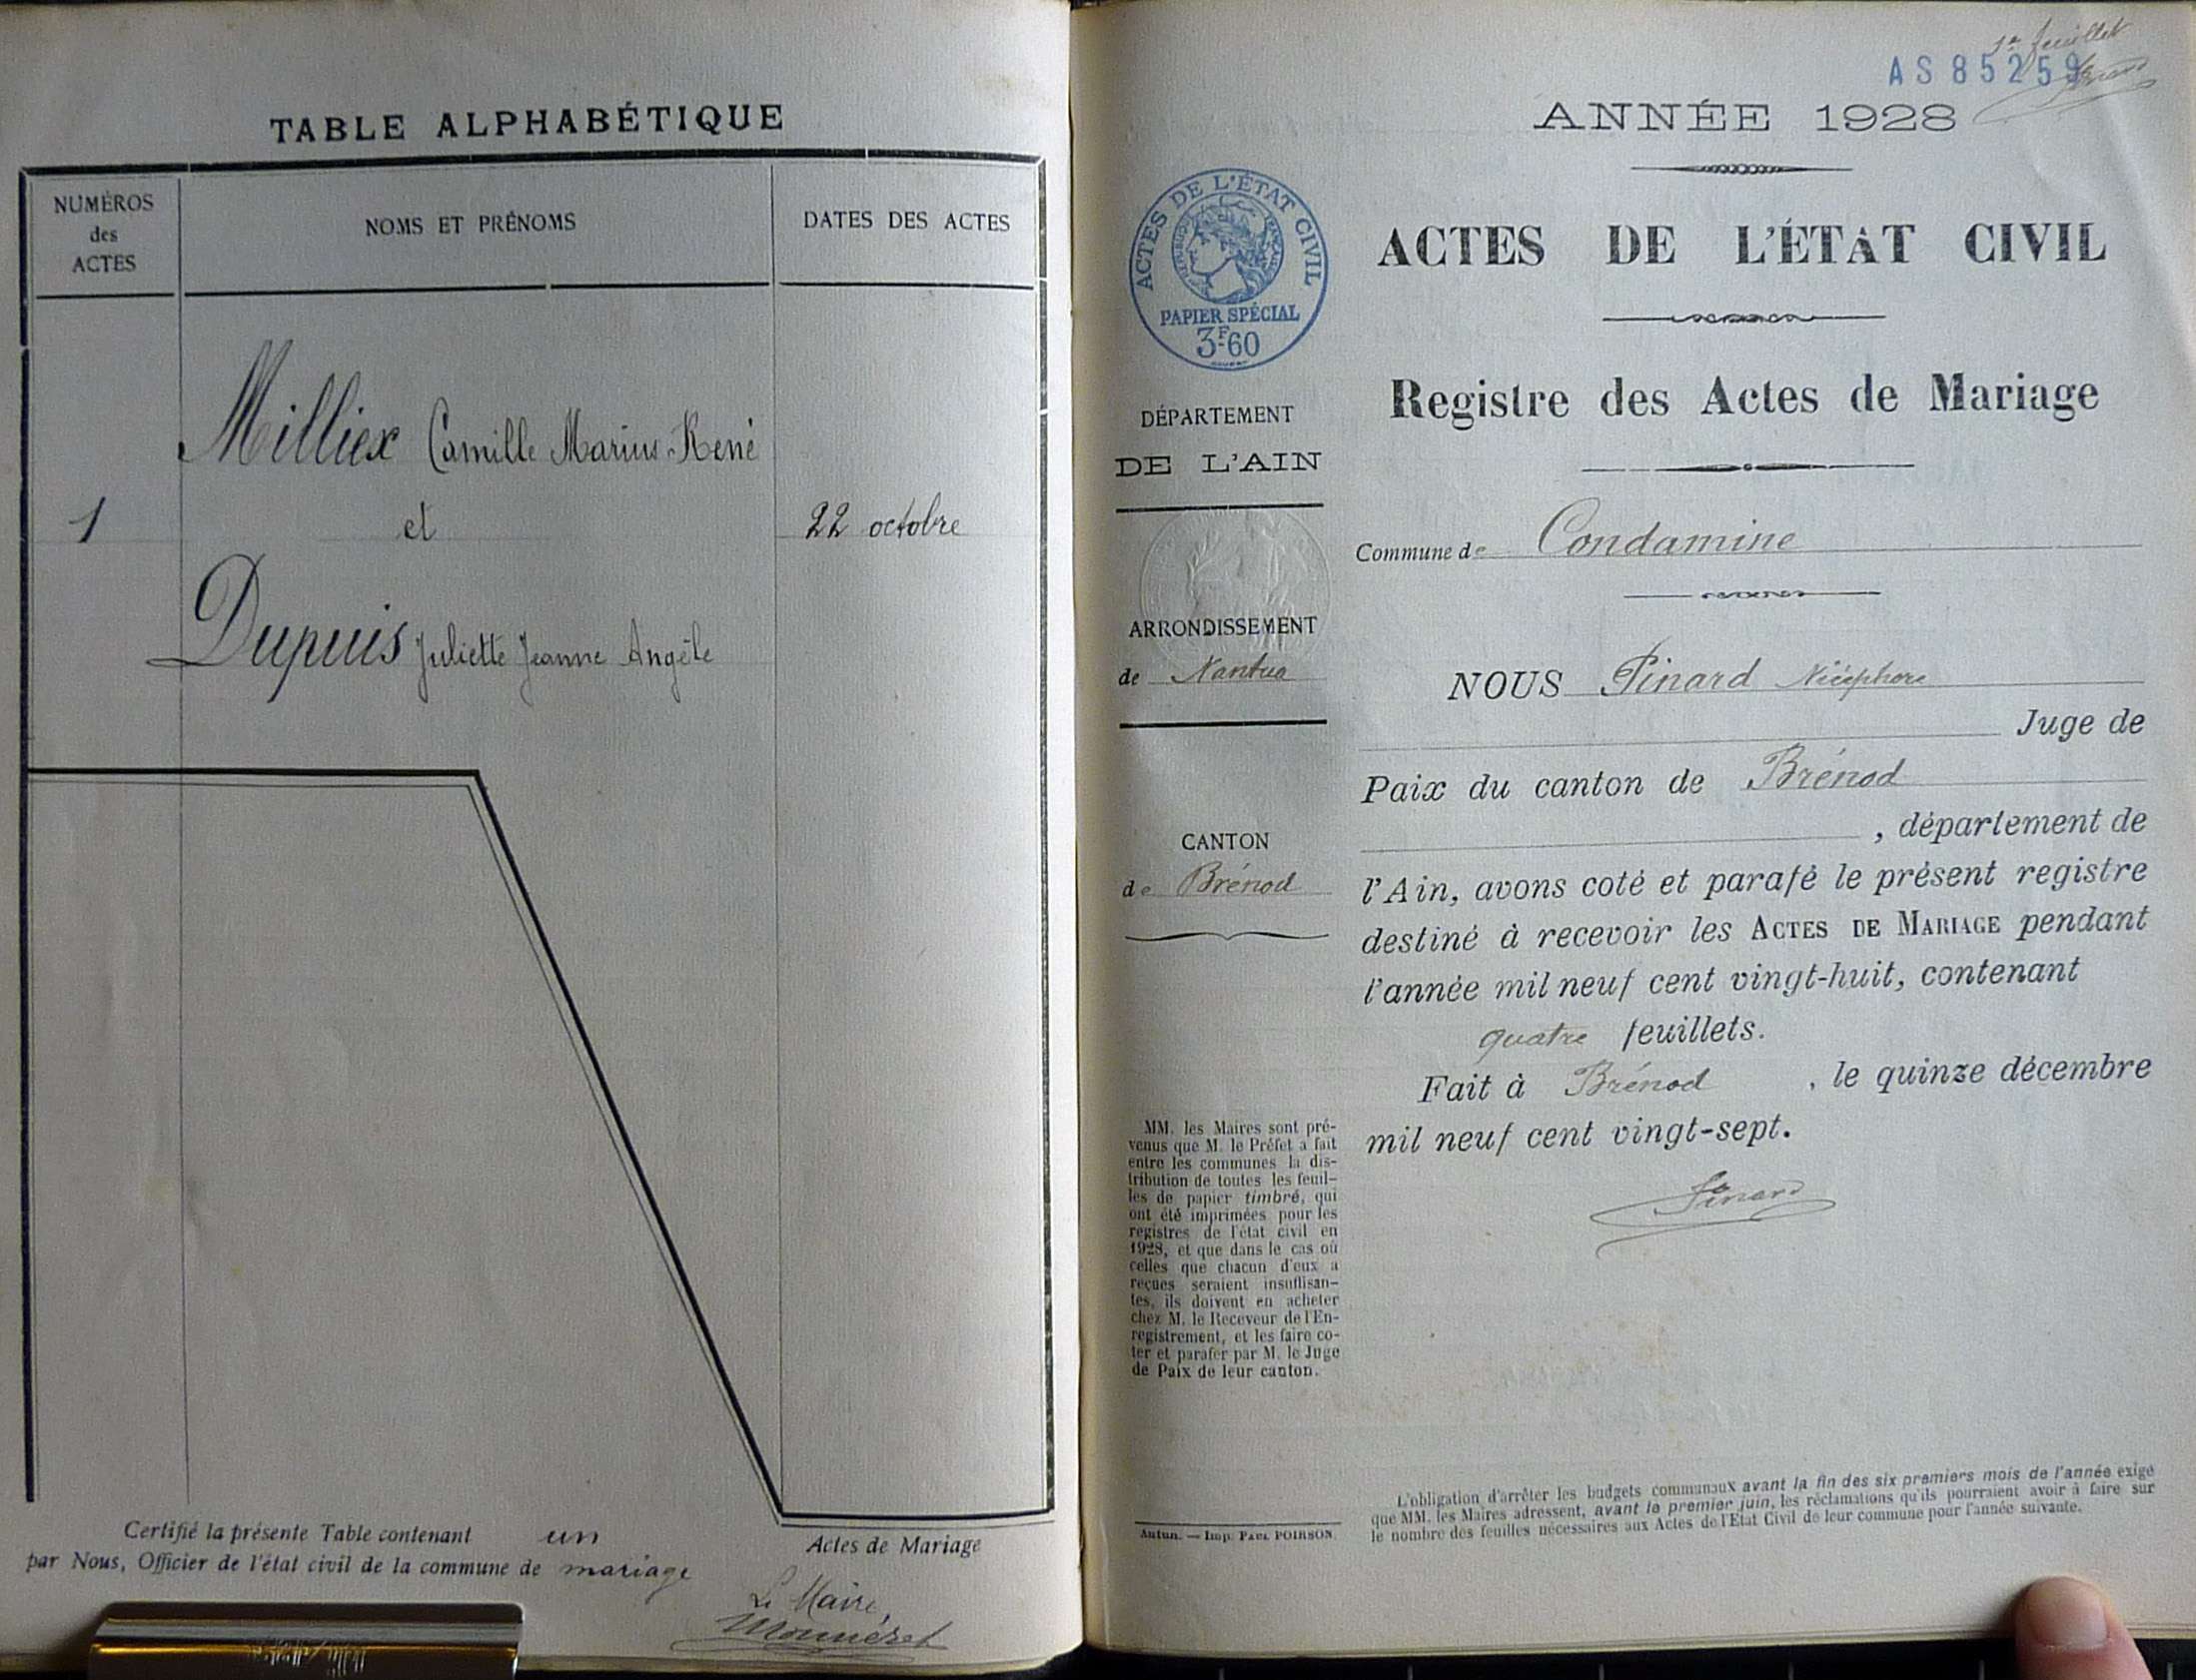 TABLE ALPHABÉTIQUE
NUMÉROS
des
ACTES
NOMS ET PRÉNOMS
DATES DES ACTES
Milliex Camille Marius René
1
et
22 octobre
Dupuis Juliette Jeanne Angèle
Certifié la présente Table contenant un Actes de Mariage
par Nous, Officier de l'état civil de la commune de mariage
Le Maire,
AS 85259
1er feuillet
ANNÉE 1928
ACTES DE L'ÉTAT CIVIL
RÉPUBLIQUE FRANÇAISE
PAPIER SPÉCIAL
3F.60
ACTES DE L'ÉTAT CIVIL
Registre des Actes de Mariage
DÉPARTEMENT
DE L'AIN
Commune de Condamine
ARRONDISSEMENT
de Nantua
NOUS Pinard Nicéphore
Juge de
Paix du canton de Brénod
, département de
CANTON
de Brénod
l'Ain, avons coté et parafé le présent registre
destiné à recevoir les ACTES DE MARIAGE pendant
l'année mil neuf cent vingt-huit, contenant
quatre feuillets.
Fait à Brénod, le quinze décembre
mil neuf cent vingt-sept.
Pinard
MM. les Maires sont pré-
venus que M. le Préfet a fait
entre les communes la dis-
tribution de toutes les feuil-
les de papier timbré, qui
ont été imprimées pour les
registres de l'état civil en
1928, et que dans le cas où
celles que chacun d'eux a
reçues seraient insuffisan-
tes, ils doivent en acheter
chez M. le Receveur de l'En-
registrement, et les faire co-
ter et parafer par M. le Juge
de Paix de leur canton.
Autun. — Imp. PAUL POIRSON.
L'obligation d'arrêter les budgets communaux avant la fin des six premiers mois de l'année exige
que MM. les Maires adressent, avant le premier juin, les réclamations qu'ils pourraient avoir à faire sur
le nombre des feuilles nécessaires aux Actes de l'Etat Civil de leur commune pour l'année suivante.